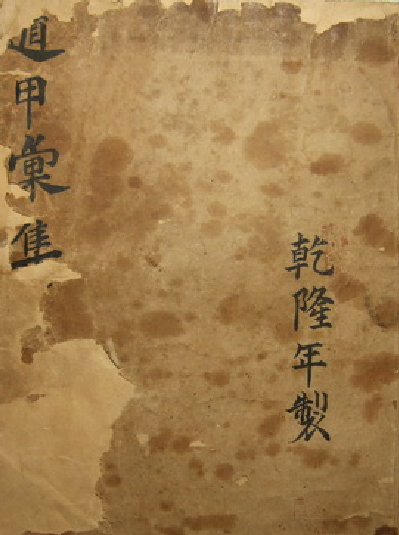 乾隆年製
遁甲彙集